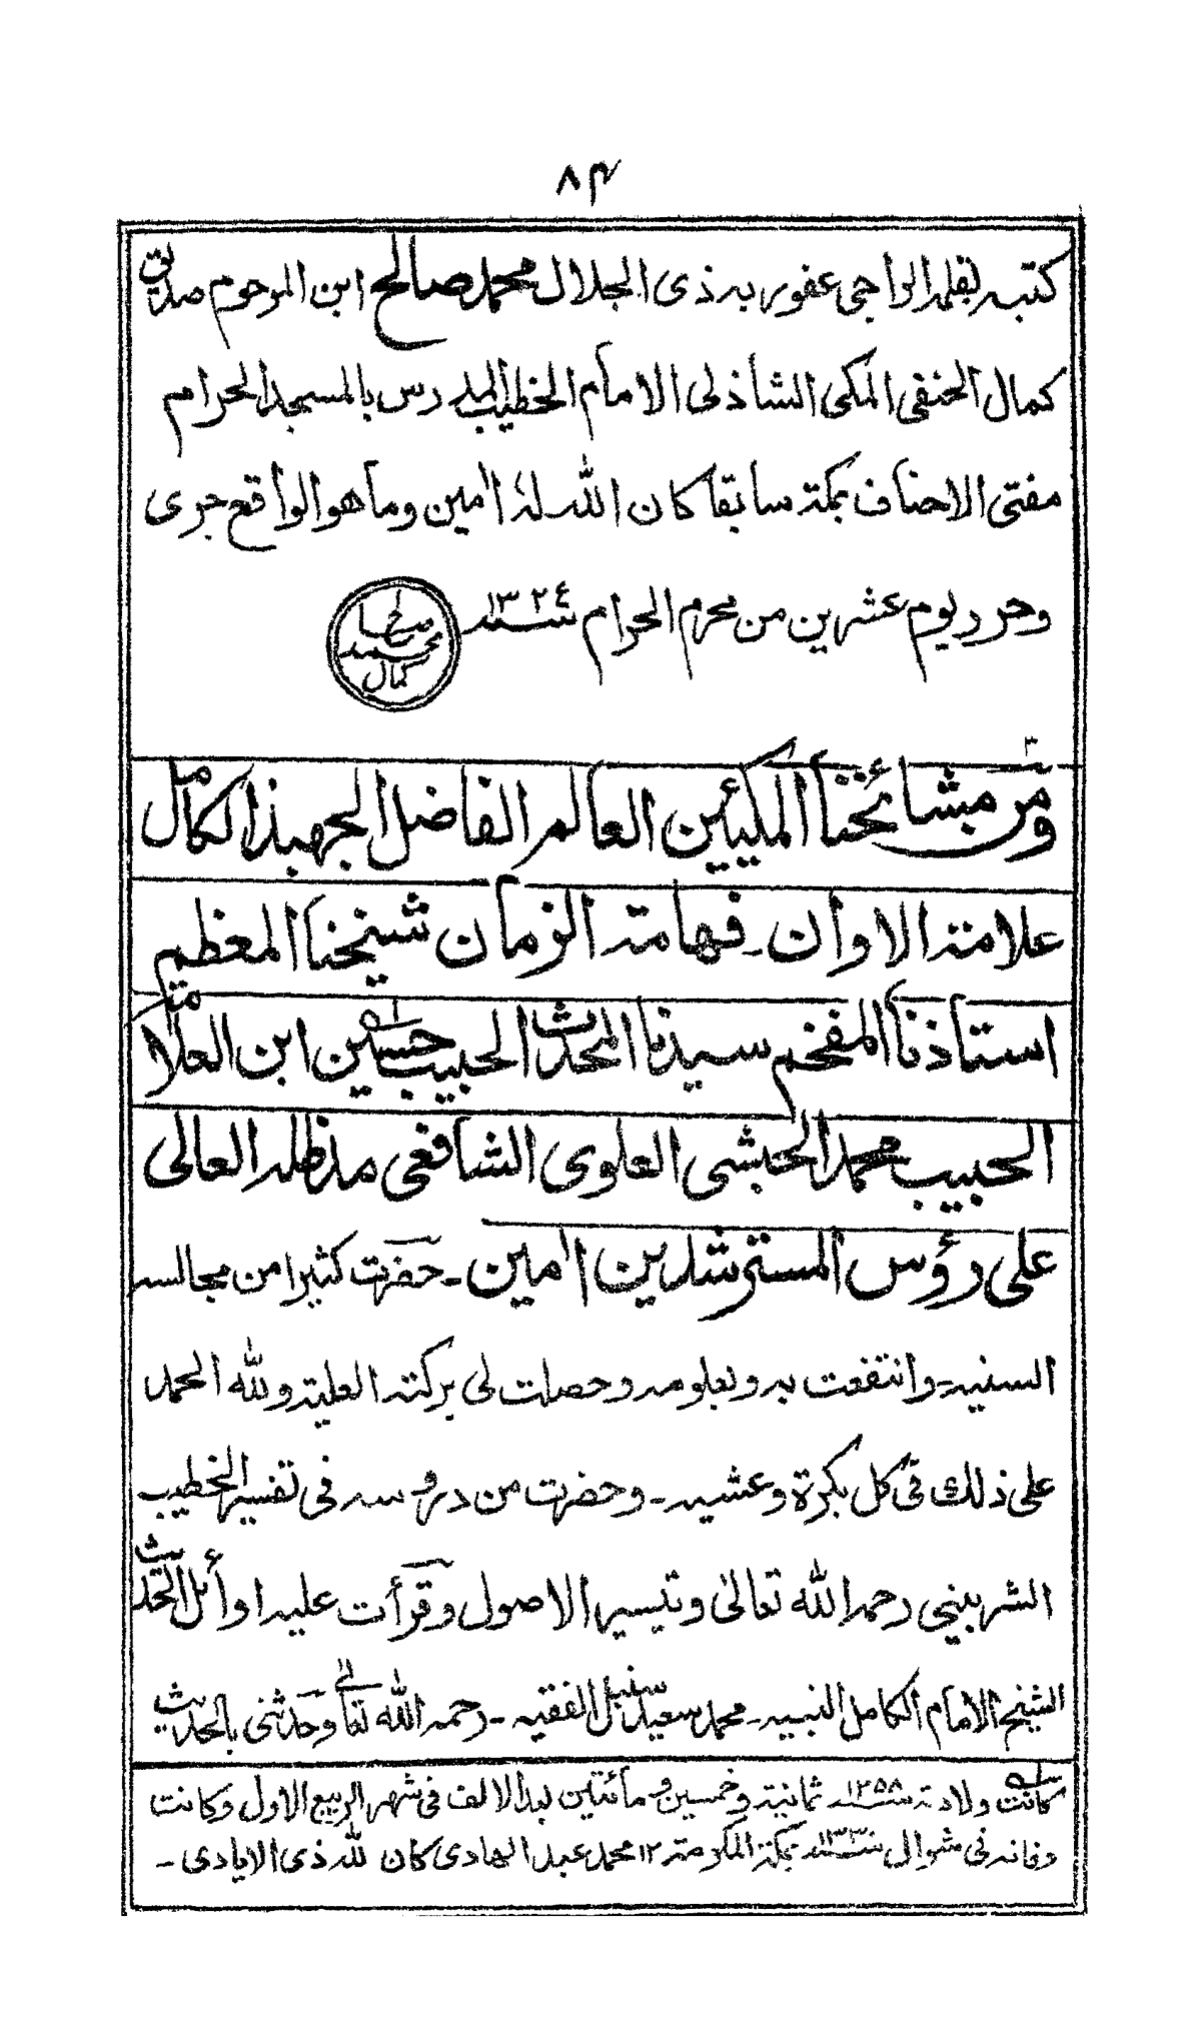 ٨٣
كتبه بقلمه الراجى عفو ربه ذى الجلال محمد صالح ابن المرحوم صديق
كمال الحنفى المكى الشاذلى الامام الخطيب المدرس بالمسجد الحرام
مفتى الاحناف بمكة سابقا كان الله له اٰمين وما هو الواقع جرى
وحرر يوم عشرين من محرم الحرام سنه ١٣٢٤
صالح
محمد
كمال
٣
ومن مشائخنا المكيين العالم الفاضل الجهبذ الكامل
علامة الاوان ـ فهامة الزمان شيخنا المعظم
استاذنا المفخم سيدنا المحدث الحبيب حسين ابن العلامة
الحبيب محمد الحبشى العلوى الشافعى مد ظله العالى
على رؤس المسترشدين اٰمين ـ حضرت كثيرا من مجالسه
السنيه ـ وانتفعت به وبعلومه وحصلت لى بركته العلية ولله الحمد
على ذلك فى كل بكرة وعشيه ـ وحضرت من دروسه فى تفسير الخطيب
الشربينى رحمه الله تعالىٰ وتيسير الاصول وقرأت عليه اوائل الحديث
الشيخ الامام الكامل النبيه ـ محمد سعيد سنبل الفقيه ـ رحمه الله تعالىٰ وحدثنى بالحديث
كانت ولادته سنه ١٢٥٨ ثمانية وخمسين ومائتين بعد الالف فى شهر الربيع الاول وكانت
وفاته فى شوال سنه ١٣٣٠ بمكة المكرمة ١٢ محمد عبد الهادى كان لله ذى الايادى ـ